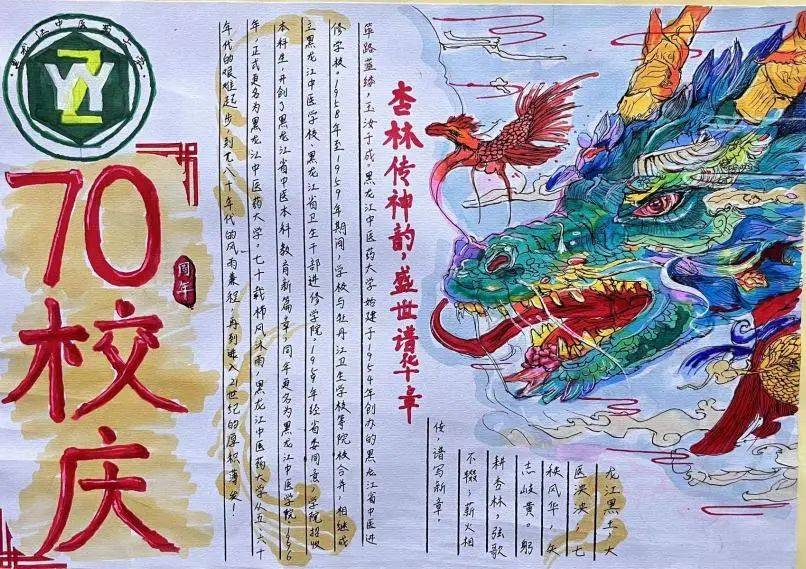 黑龙江中医药大学
ZYY
70
周年
校庆
杏林传神韵，盛世谱华章
筚路蓝缕，玉汝于成。黑龙江中医药大学始建于1954年创办的黑龙江省中医进
修学校。1958年至1959年期间，学校与牡丹江卫生学校等院校合并，相继成
立黑龙江中医学校、黑龙江省卫生干部进修学院。1959年经省委同意，学院招收
本科生，开创了黑龙江省中医本科教育新篇章，同年更名为黑龙江中医学院。1996
年，正式更名为黑龙江中医药大学。七十载栉风沐雨，黑龙江中医药大学从五、六十
年代的艰难起步，到七八十年代的风雨兼程，再到跨入21世纪的厚积薄发！
龙江黑土，大
医泱泱，七
秩风华，矢
志岐黄。躬
耕杏林，弦歌
不辍，薪火相
传，谱写新章。